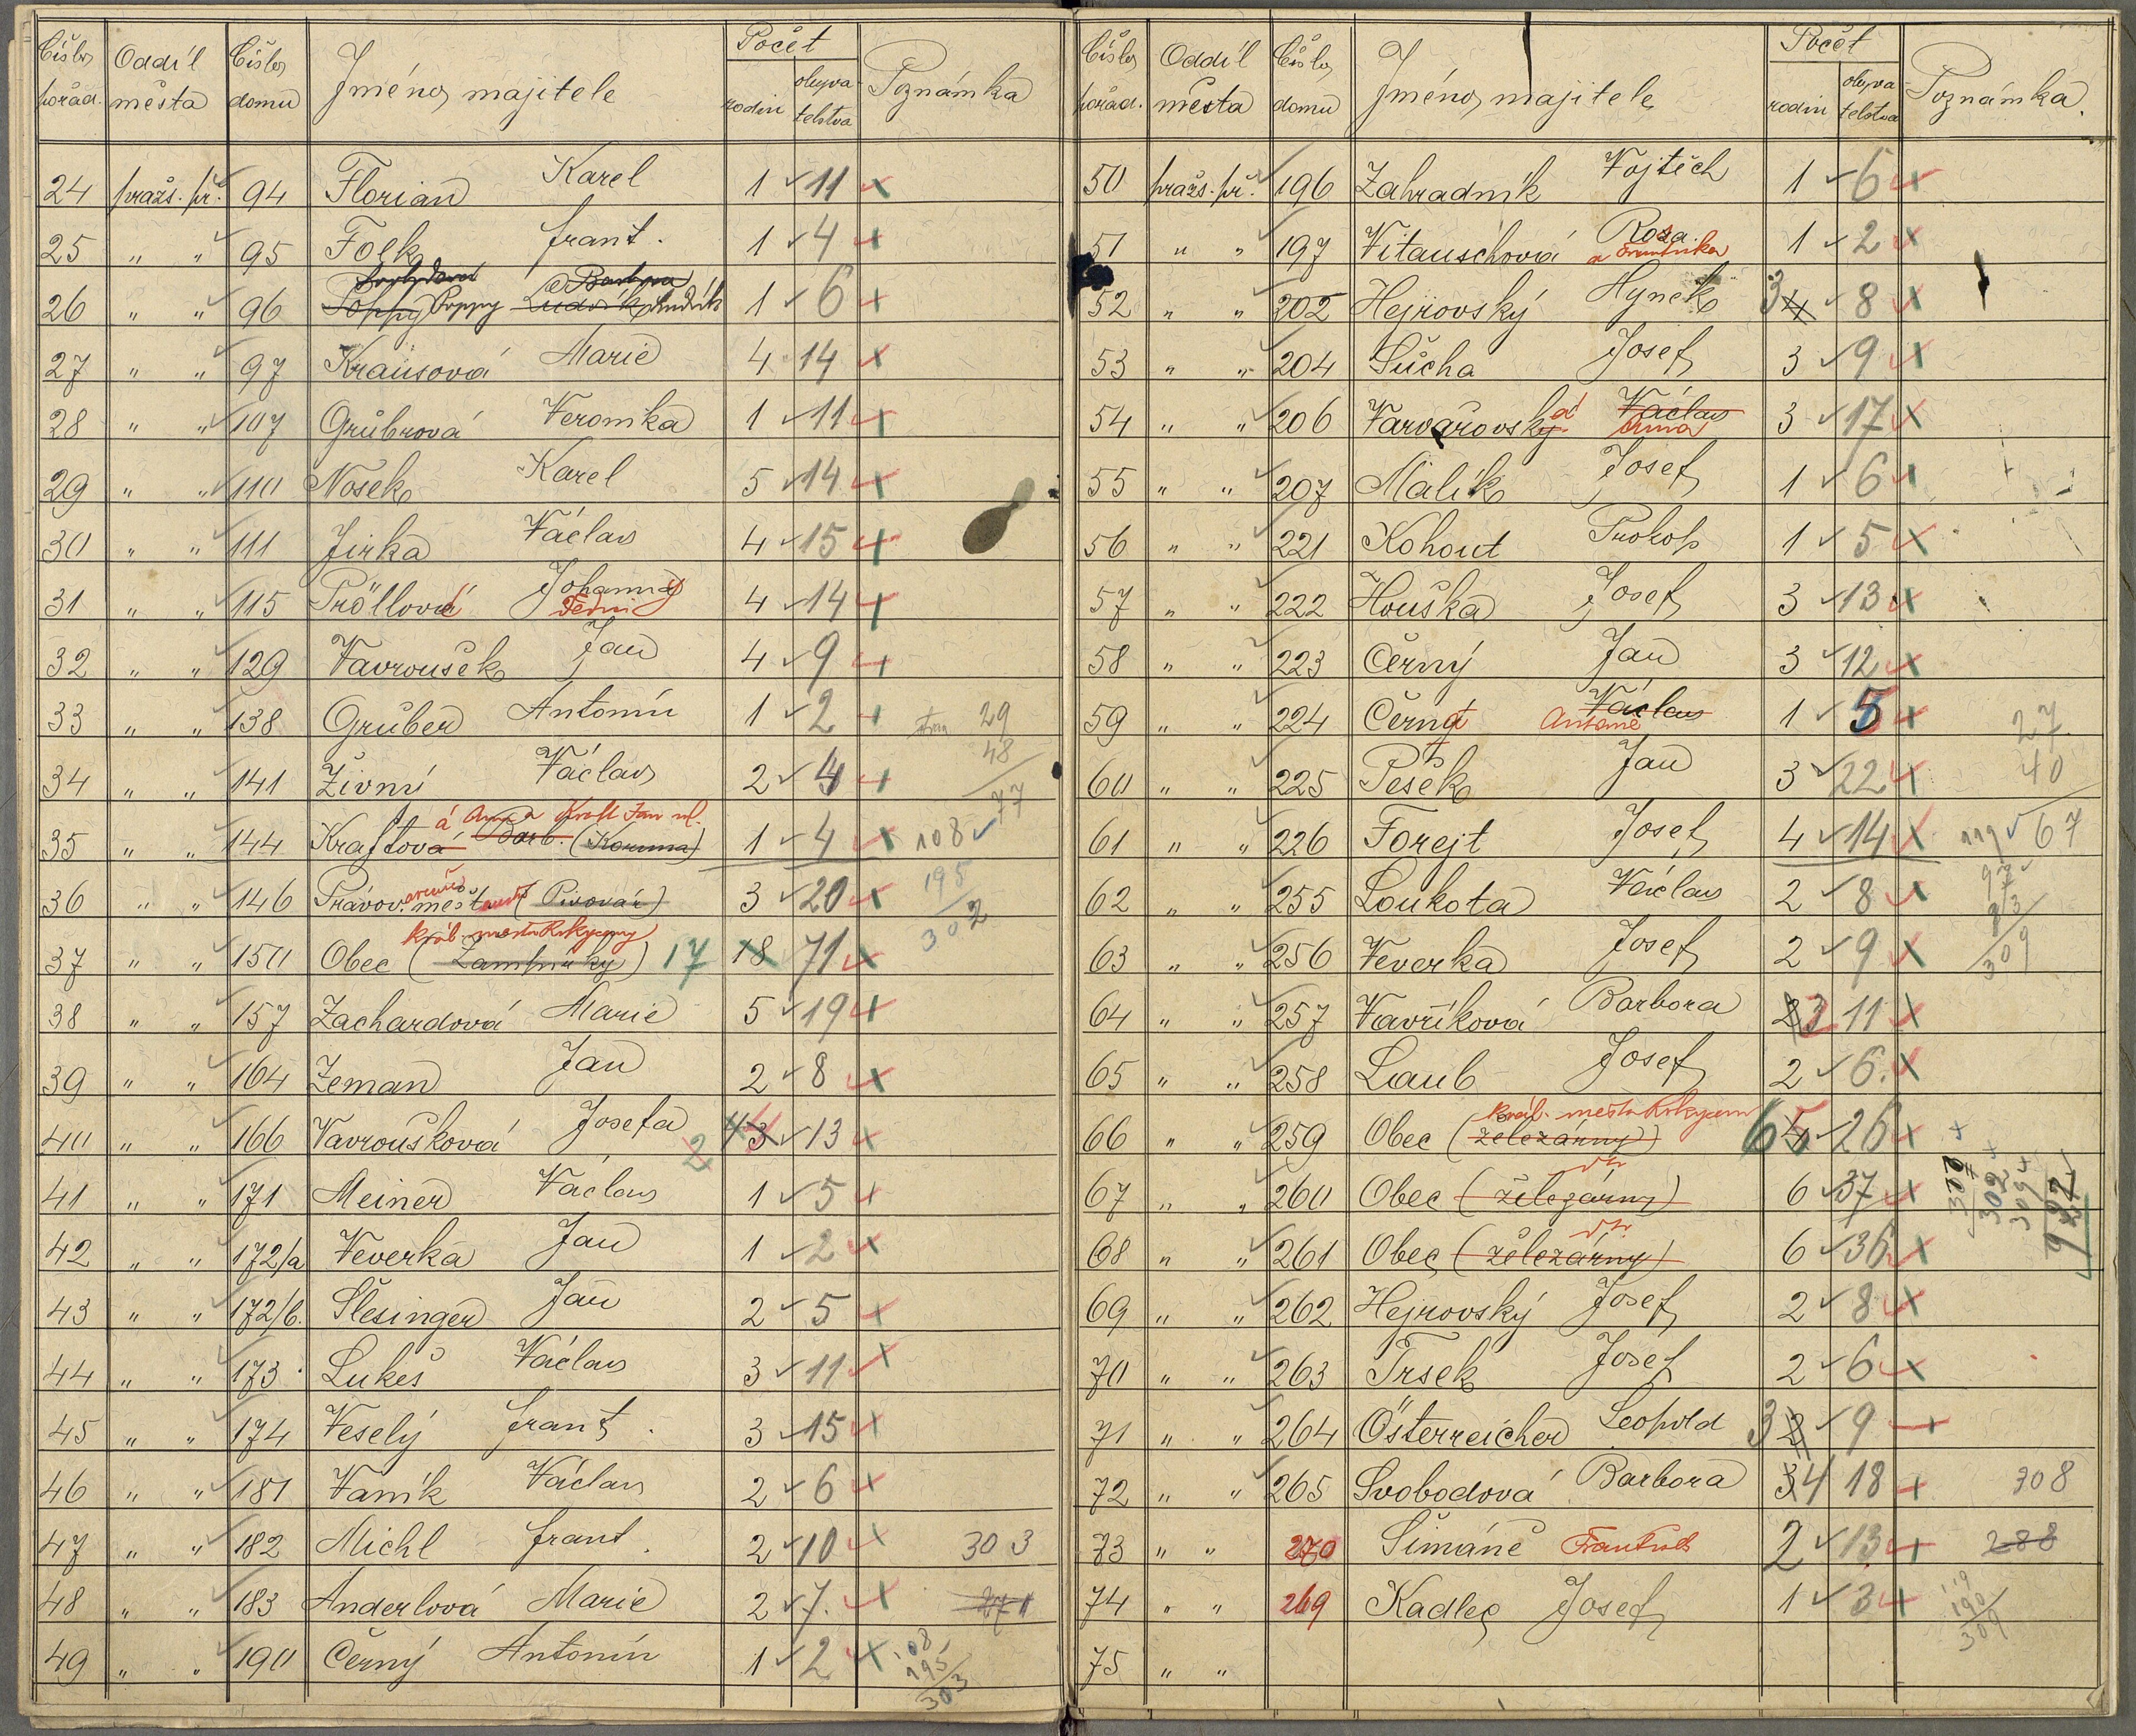 Číslo pořad. Oddíl města Číslo domu Jméno majitele Počet rodin obyvatelstva Poznámka
24 pražs. př. 94 Florian Karel 1 11
25 " " 95 Folk frant. 1 4
26 " " 96 Poppy Poppy Ludvík Ludvík 1 6
27 " " 97 Krausová Marie 4 14
28 " " 107 Grubrová Veronika 1 11
29 " " 110 Nosek Karel 5 14
30 " " 111 Jirka Václav 4 15
31 " " 115 Pröllová Johanna 4 14
32 " " 129 Vavroušek Jan 4 9
33 " " 138 Gruber Antonín 1 2 29
48
34 " " 141 Živní Václav 2 4 77
á Anna Kraft Jan ml.
35 " " 144 Kraftová Barb. (Koruna) 1 4 108
36 " " 146 Právov. měšťan. (Pivovár) 3 20 195
302
král. města Rokycany
37 " " 150 Obec (Zámpůrky) 17 18 71
38 " " 157 Zachardová Marie 5 19
39 " " 164 Zeman Jan 2 8
40 " " 166 Vavroušková Josefa 2 4 3 13
41 " " 171 Meiner Václav 1 5
42 " " 172/a Veverka Jan 1 2
43 " " 172/b. Šlesinger Jan 2 5
44 " " 173 Lukeš Václav 3 11
45 " " 174 Veselý frant. 3 15
46 " " 181 Vaník Václav 2 6
47 " " 182 Michl frant. 2 10 303
48 " " 183 Anderlová Marie 2 7.
49 " " 190 Černý Antonín 1 2 108
195
303
Číslo pořad. Oddíl města Číslo domu Jméno majitele Počet rodin obyvatelstva Poznámka.
50 pražs. př. 196 Zahradník Vojtěch 1 6
51 " " 197 Vitauschová Rosa a Františka 1 2
52 " " 202 Hejrovský Hynek 3 4 8
53 " " 204 Sucha Josef 3 9
54 " " 206 Varvařovský á Václav Anna 3 17
55 " " 207 Malík Josef 1 6
56 " " 221 Kohout Prokop 1 5
57 " " 222 Houška Josef 3 13
58 " " 223 Černý Jan 3 12
59 " " 224 Černý Václav Antonie 1 5 27
60 " " 225 Pešek Jan 3 22 40
61 " " 226 Forejt Josef 4 14 119 67
62 " " 255 Loukota Václav 2 8 97
93
63 " " 256 Veverka Josef 2 9 309
64 " " 257 Vavříková Barbora 2 3 11
65 " " 258 Laub Josef 2 6.
král. města Rokycan
66 " " 259 Obec (železárny) 6 5 4 26
67 " " 260 Obec (železárny) 6 37
68 " " 261 Obec (železárny) 6 36
302
309
922
69 " " 262 Hejrovský Josef 2 8
70 " " 263 Trsek Josef 2 6
71 " " 264 Österreicher Leopold 3 2 9
72 " " 265 Svobodová Barbora 3 4 18 308
73 " " 270 Šimáně František 2 13 288
74 " " 269 Kadlec Josef 1 3 119
190
309
75 " "